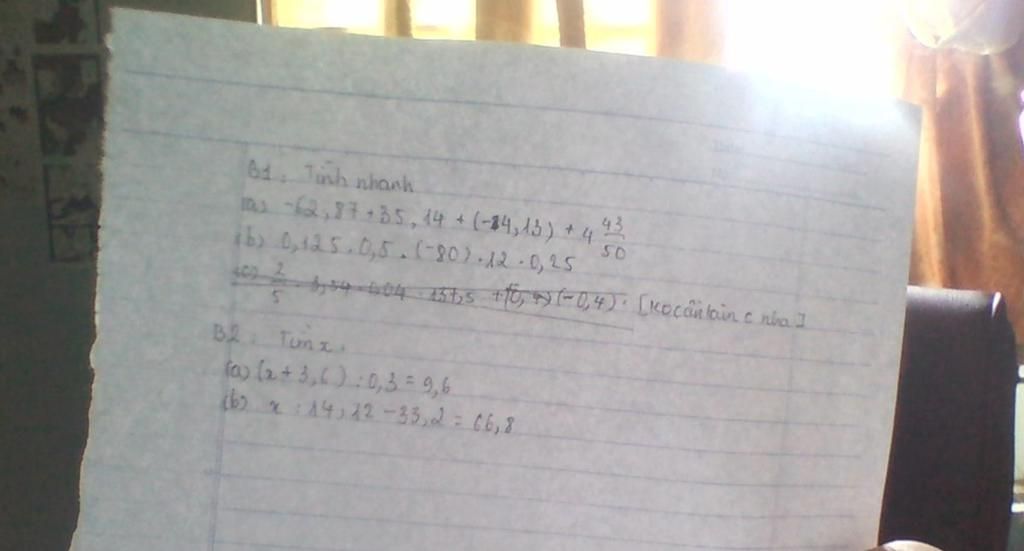 B1: Tính nhanh
(a) -62,87 + 35,14 + (-84,13) + 4 43/50
(b) 0,125 . 0,5 . (-80) . 12 . 0,25
(c) 2/5 . 0,04 . 137,5 + (-0,4) . [Ko cần làm c nha]
B2: Tìm x.
(a) (x + 3,6) : 0,3 = 9,6
(b) x : 14,12 - 33,2 = 66,8